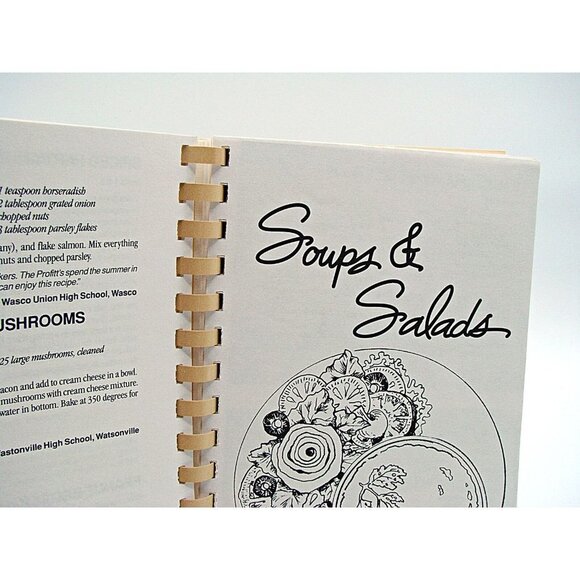 1 teaspoon horseradish
2 tablespoon grated onion
chopped nuts
3 tablespoon parsley flakes
any), and flake salmon. Mix everything
nuts and chopped parsley.
kers. The Profitt's spend the summer in
can enjoy this recipe."
Wasco Union High School, Wasco
USHROOMS
25 large mushrooms, cleaned
acon and add to cream cheese in a bowl.
mushrooms with cream cheese mixture.
water in bottom. Bake at 350 degrees for
astonville High School, Watsonville
Soups &
Salads